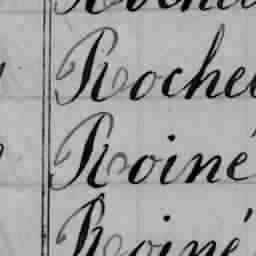 Roche
Roiné
Roiné